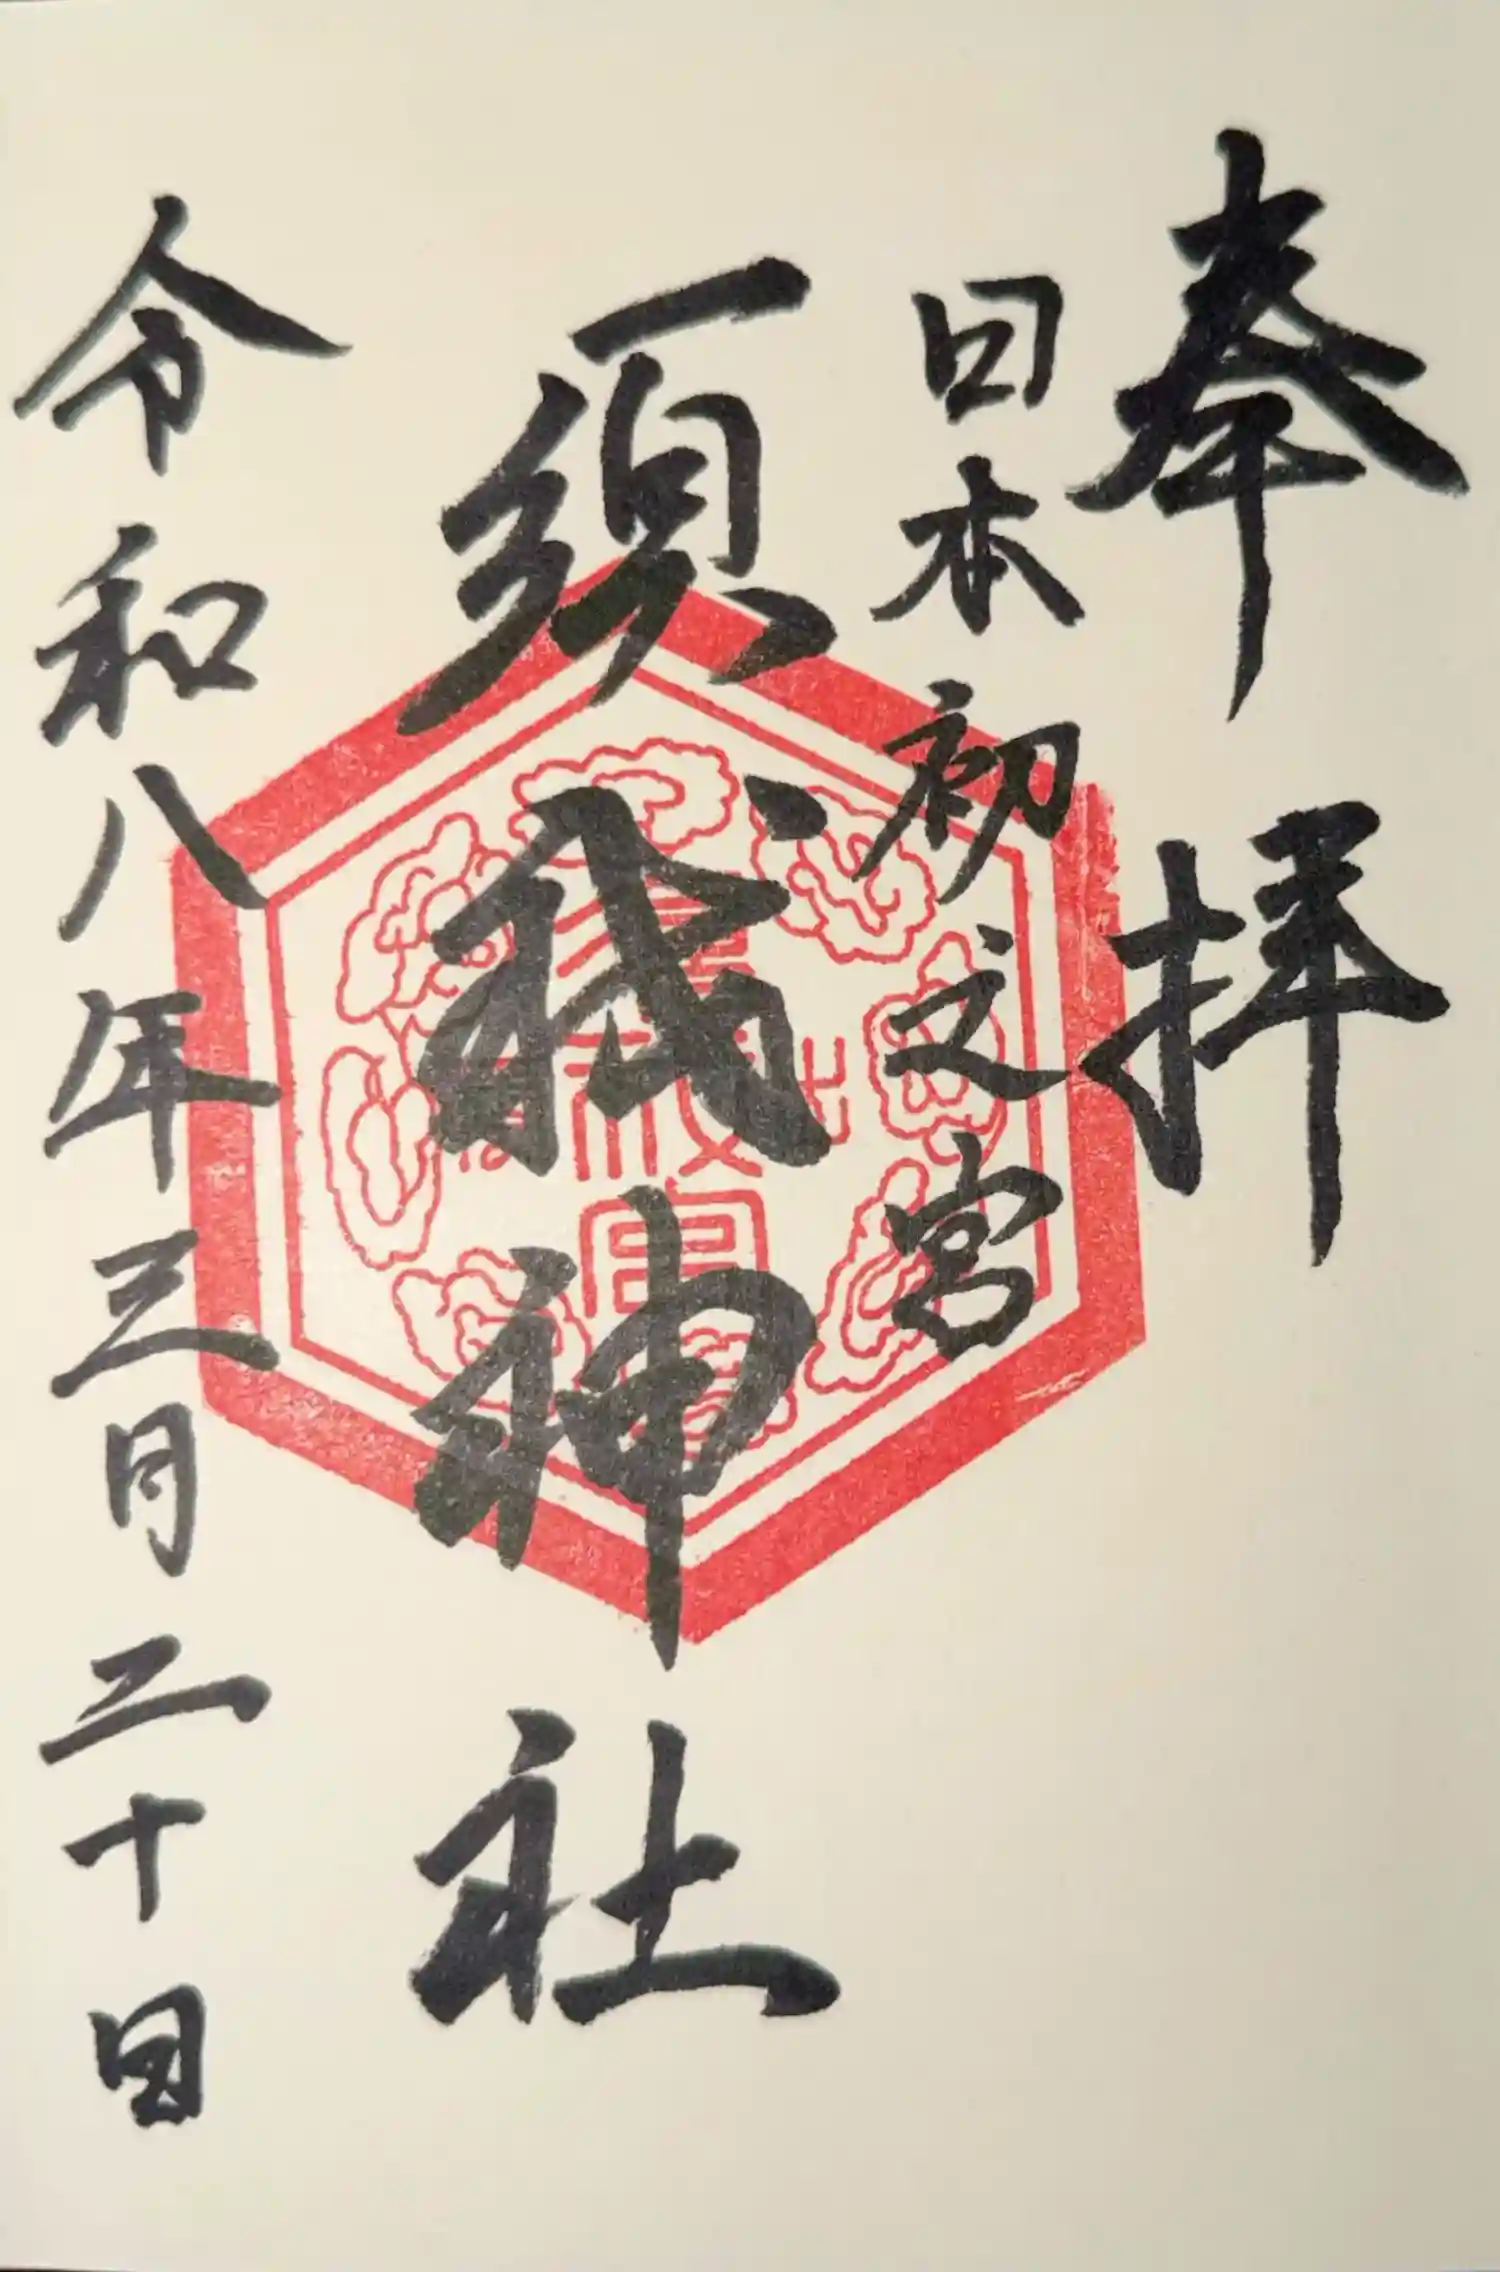 奉拝
日本初之宮
須我神社
令和八年三月二十日